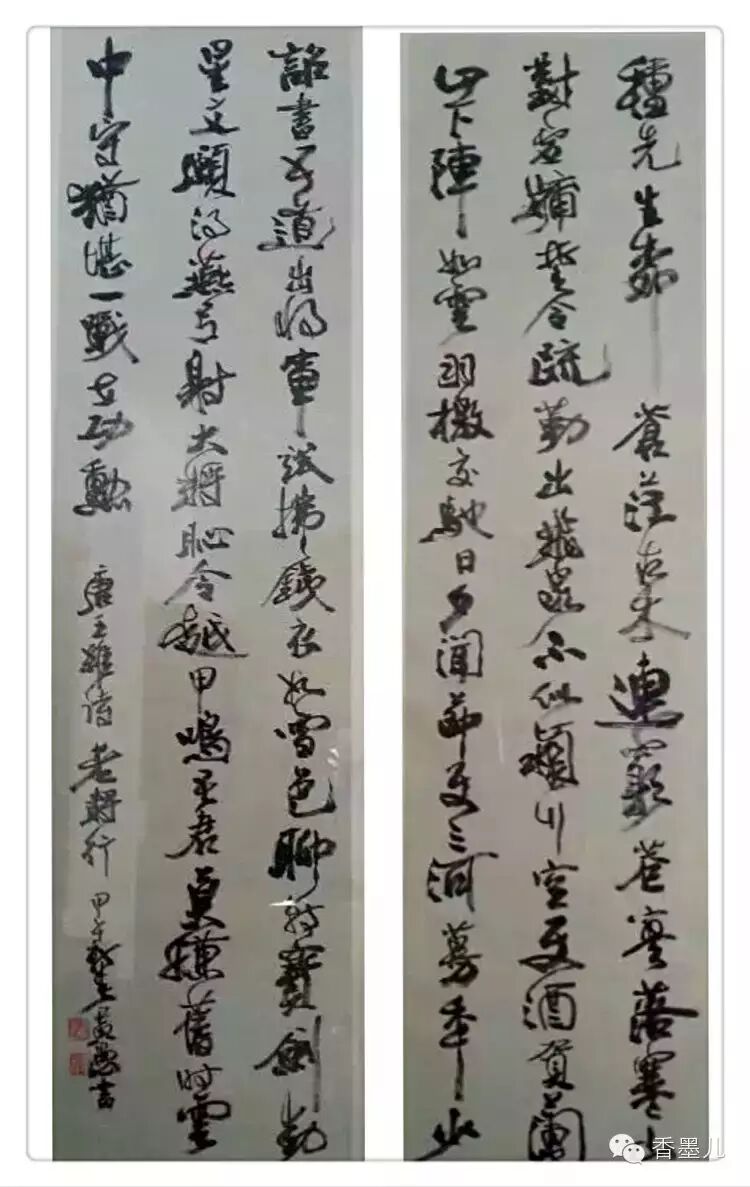 種先生柳蒼茫古木連窮巷寥落寒山
對窗牖誓令疏勒出飛泉不似潁川空使酒賀蘭
山下陣如雲羽檄交馳日夕聞節使三河募年少
詔書五道出將軍試拂鐵衣如雪色聊持寶劍動
星文願得燕弓射大將恥令越甲鳴吾君莫嫌舊時雲
中守猶堪一戰立功勳 唐王維詩老將行 甲午 書
香墨儿